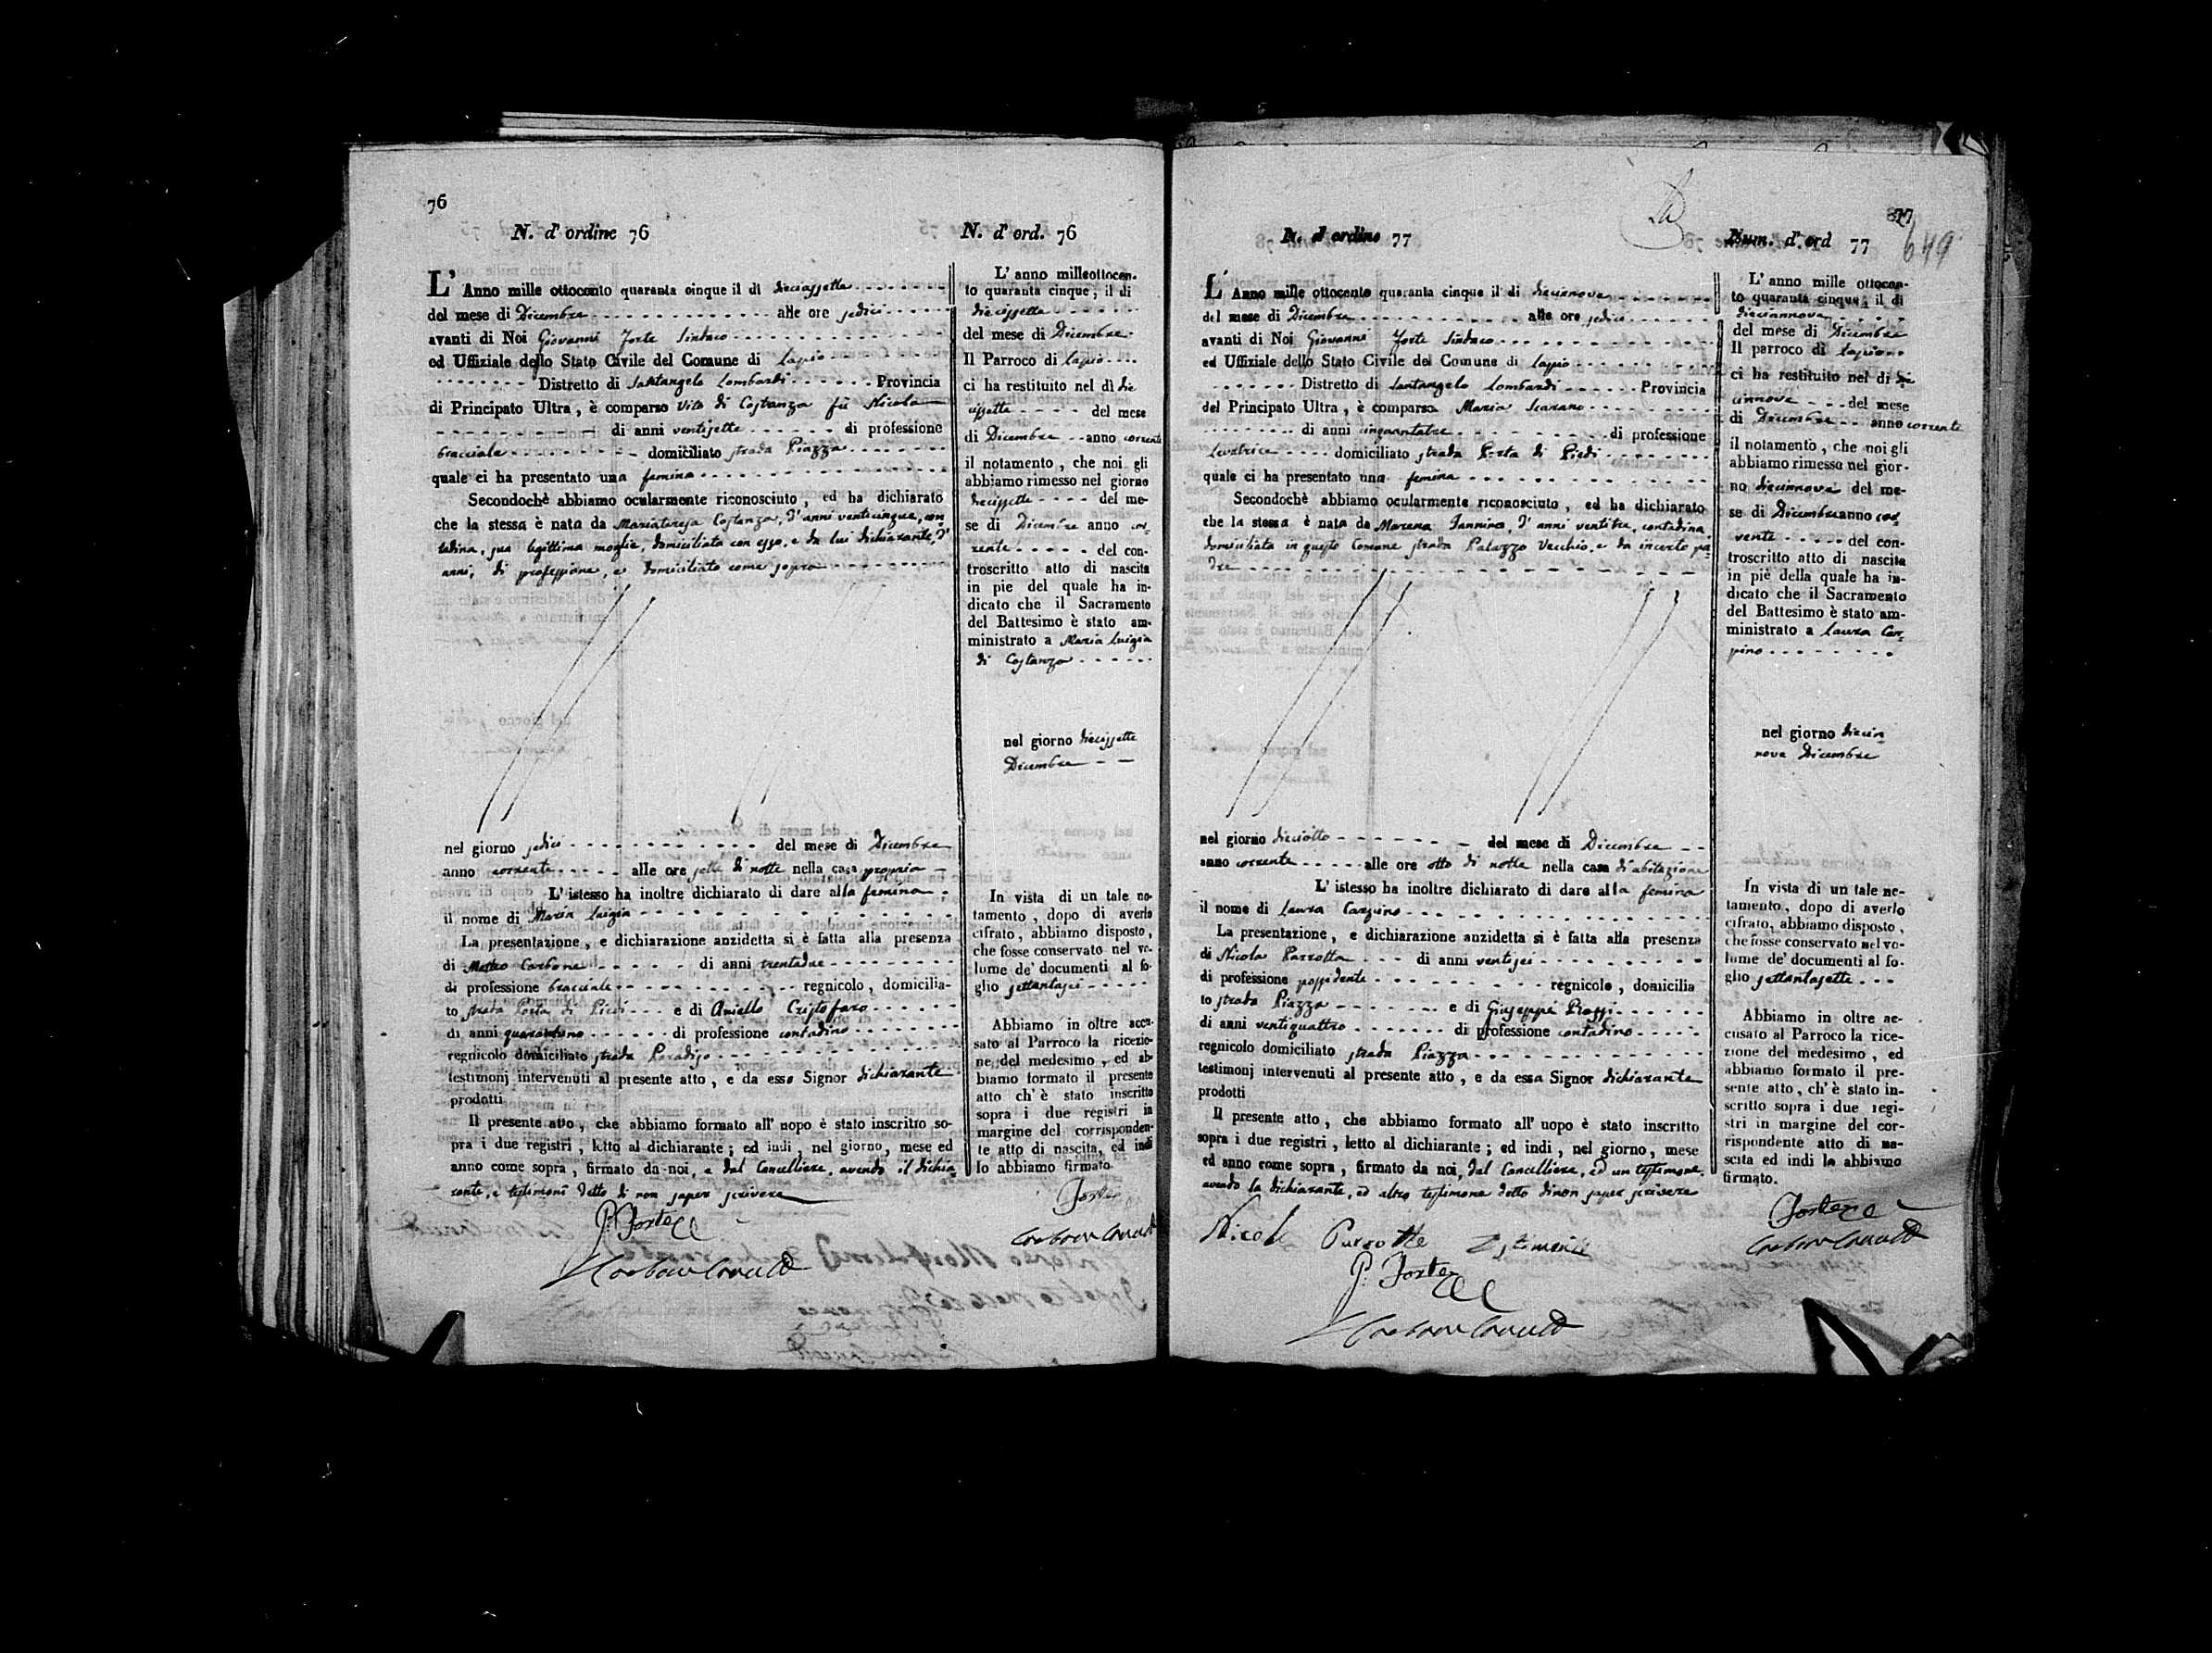 76
N. d' ordine 76
L' Anno mille ottocento quaranta cinque il di diecissette
del mese di Dicembre alle ore sedici
avanti di Noi Giovanni Forte Sindaco
ed Uffiziale dello Stato Civile del Comune di Lapio
Distretto di Santangelo Lombardi Provincia
di Principato Ultra, è comparso Vito di Costanza fù Nicola
di anni ventisette di professione
bracciale domiciliato strada Piazza
quale ci ha presentato una femina
Secondochè abbiamo ocularmente riconosciuto, ed ha dichiarato
che la stessa è nata da Mariateresa Costanza, d'anni venticinque, con
tadina, sua legittima moglie, domiciliata con esso, e da lui dichiarante, d'
anni, di professione, e domiciliato come sopra
nel giorno sedici del mese di Dicembre
anno corrente alle ore sette di notte nella casa propria
L' istesso ha inoltre dichiarato di dare alla femina
il nome di Maria Luigia
La presentazione, e dichiarazione anzidetta si è fatta alla presenza
di Matteo Carbone di anni trentadue
di professione bracciale regnicolo, domicilia-
to strada Porta di Piedi e di Aniello Cristofaro
di anni quarantuno di professione contadino
regnicolo domiciliato strada Paradiso
testimonj intervenuti al presente atto, e da esso Signor dichiarante
prodotti
Il presente atto, che abbiamo formato all' uopo è stato inscritto so-
pra i due registri, letto al dichiarante; ed indi, nel giorno, mese ed
anno come sopra, firmato da noi, e dal Cancelliere, avendo il dichia
rante, e testimonî detto di non saper scrivere
G. Forte
N. d' ord. 76
L' anno milleottocen-
to quaranta cinque, il di
diecissette
del mese di Dicembre
Il Parroco di Lapio
ci ha restituito nel dì die
cissette del mese
di Dicembre anno corrente
il notamento, che noi gli
abbiamo rimesso nel giorno
diecissette del me-
se di Dicembre anno cor-
rente del con-
troscritto atto di nascita
in pie del quale ha in-
dicato che il Sacramento
del Battesimo è stato am-
ministrato a Maria Luigia
di Costanza
nel giorno diecissette
Dicembre
In vista di un tale no-
tamento, dopo di averlo
cifrato, abbiamo disposto,
che fosse conservato nel vo-
lume de' documenti al fo-
glio settantasei
Abbiamo in oltre accu-
sato al Parroco la ricezio-
ne del medesimo, ed ab-
biamo formato il presente
atto ch' è stato inscritto
sopra i due registri in
margine del corrisponden-
te atto di nascita, ed indi
lo abbiamo firmato.
Forte
77
649
N. d' ordine 77
L' Anno mille ottocento quaranta cinque il di diecinove
del mese di Dicembre alle ore sedici
avanti di Noi Giovanni Forte Sindaco
ed Uffiziale dello Stato Civile del Comune di Lapio
Distretto di Santangelo Lombardi Provincia
del Principato Ultra, è comparsa Maria Scarano
di anni cinquantatre di professione
Levatrice domiciliato strada Porta di Piedi
quale ci ha presentato una femina
Secondochè abbiamo ocularmente riconosciuto, ed ha dichiarato
che la stessa è nata da Marena Iannino, d' anni ventitre, contadina
domiciliata in questo Comune strada Palazzo Vecchio, e da incerto pa-
dre
nel giorno dieciotto del mese di Dicembre
anno corrente alle ore otto di notte nella casa d'abitazione
L' istesso ha inoltre dichiarato di dare alla femina
il nome di Laura Carpino
La presentazione, e dichiarazione anzidetta si è fatta alla presenza
di Nicola Parrotta di anni ventisei
di professione possidente regnicolo, domicilia
to strada Piazza e di Giuseppe Rossi
di anni ventiquattro di professione contadino
regnicolo domiciliato strada Piazza
testimonj intervenuti al presente atto, e da essa Signor dichiarante
prodotti
Il presente atto, che abbiamo formato all' uopo è stato inscritto
sopra i due registri, letto al dichiarante; ed indi, nel giorno, mese
ed anno come sopra, firmato da noi, dal Cancelliere, ed un testimone
avendo la dichiarante, ed altro testimone detto dinon saper scrivere
Nicola Parrotta Testimonio
G. Forte
Num. d'. ord 77
L' anno mille ottocen-
to quaranta cinque, il di
dieciannove
del mese di Dicembre
Il parroco di Lapio
ci ha restituito nel di die
cinnove del mese
di Dicembre anno corrente
il notamento, che noi gli
abbiamo rimesso nel gior-
no diecinnove del me-
se di Dicembre anno cor-
rente del con-
troscritto atto di nascita
in piè della quale ha in-
dicato che il Sacramento
del Battesimo è stato am-
ministrato a Laura Car-
pino
nel giorno diecin-
nove Dicembre
In vista di un tale no-
tamento, dopo di averlo
cifrato, abbiamo disposto,
che fosse conservato nel vo-
lume de' documenti al fo-
glio settantasette
Abbiamo in oltre ac-
cusato al Parroco la rice-
zione del medesimo, ed
abbiamo formato il pre-
sente atto, ch' è stato in-
scritto sopra i due regi-
stri in margine del cor-
rispondente atto di na-
scita ed indi lo abbiamo
firmato.
Forte